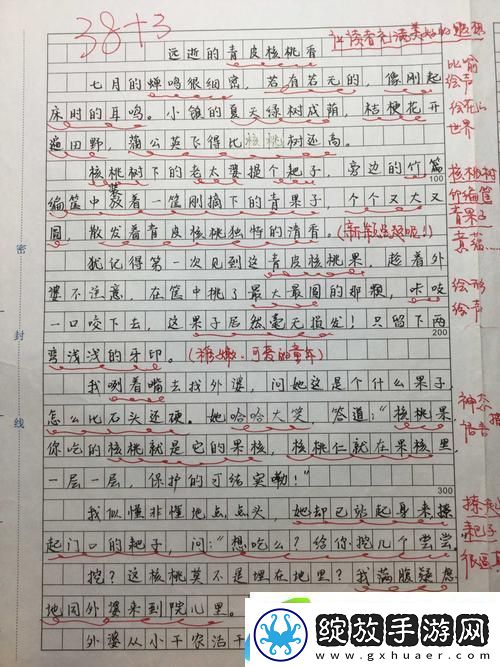 38+3
远逝的青皮核桃香
七月的蝉鸣很细密，若有若无的，像刚起
床时的耳鸣。小镇的夏天绿树成荫，桔梗花开
遍田野，蒲公英飞得比核桃树还高。
核桃树下的老太婆摸个耙子，旁边的竹篇
编筐中装着一筐刚摘下的青果子，个个又大又
圆，散发着青皮核桃独特的清香。
犹记得第一次见到这青皮核桃果，趁着外
婆不注意，在筐中挑了最大最圆的那颗，咔吱
一口咬下去，这果子居然毫无损发！只留下两
弯浅浅的牙印。（稚嫩、可爱的童年）
我咧着嘴去找外婆，问她这是个什么果子，
怎么比石头还硬。她哈哈大笑 答道：“核桃果，
你吃的核桃就是它的果核，核桃仁就在果核里，
一层一层，保护的可结实嘞！”
我似懂非懂地点点头，她却已站起身来操
起门口的耙子，问：“想吃么？给你挖几个尝尝。
挖？这核桃莫不是埋在地里？我满腹疑惑
地同外婆来到院儿里。
外婆从小干农活干
100
200
300
密
封
线
比喻
绘声
世界
核桃树
竹编筐
青果子
绘形
绘声
神态
耙子
绽放手游网
www.gxhuaer.com